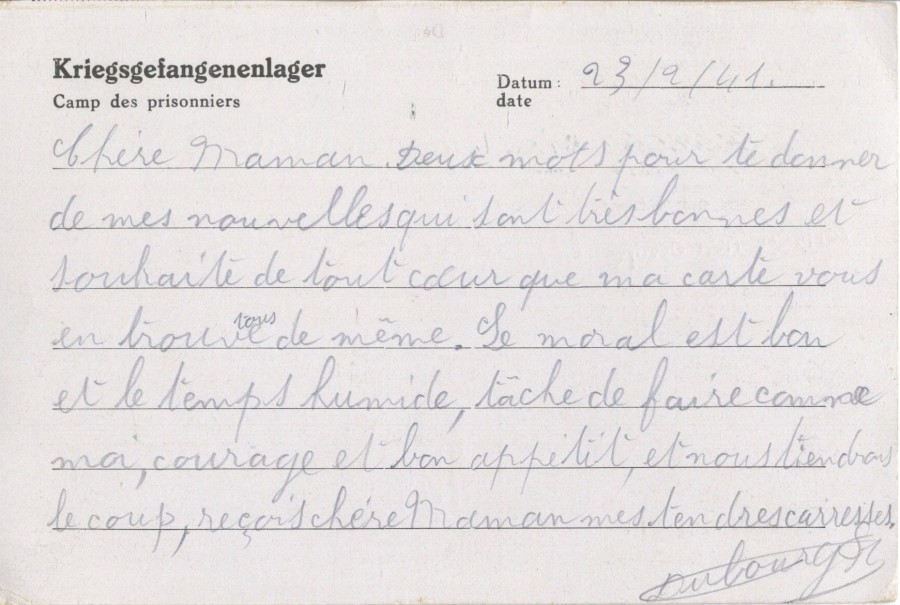 Kriegsgefangenenlager
Camp des prisonniers
Datum: 23/2/41.
date
Chère Maman Deux mots pour te donner
de mes nouvelles qui sont très bonnes et
souhaite de tout cœur que ma carte vous
en trouve tous de même. Le moral est bon
et le temps humide, tâche de faire comme
moi, courage et bon appétit, et nous tiendrons
le coup, reçois chère Maman mes tendres carresses.
Dubourg